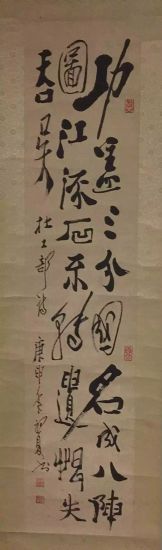 功蓋三分國名成八陣
圖江流石不轉遺恨失
吞吳 杜工部詩 庚申